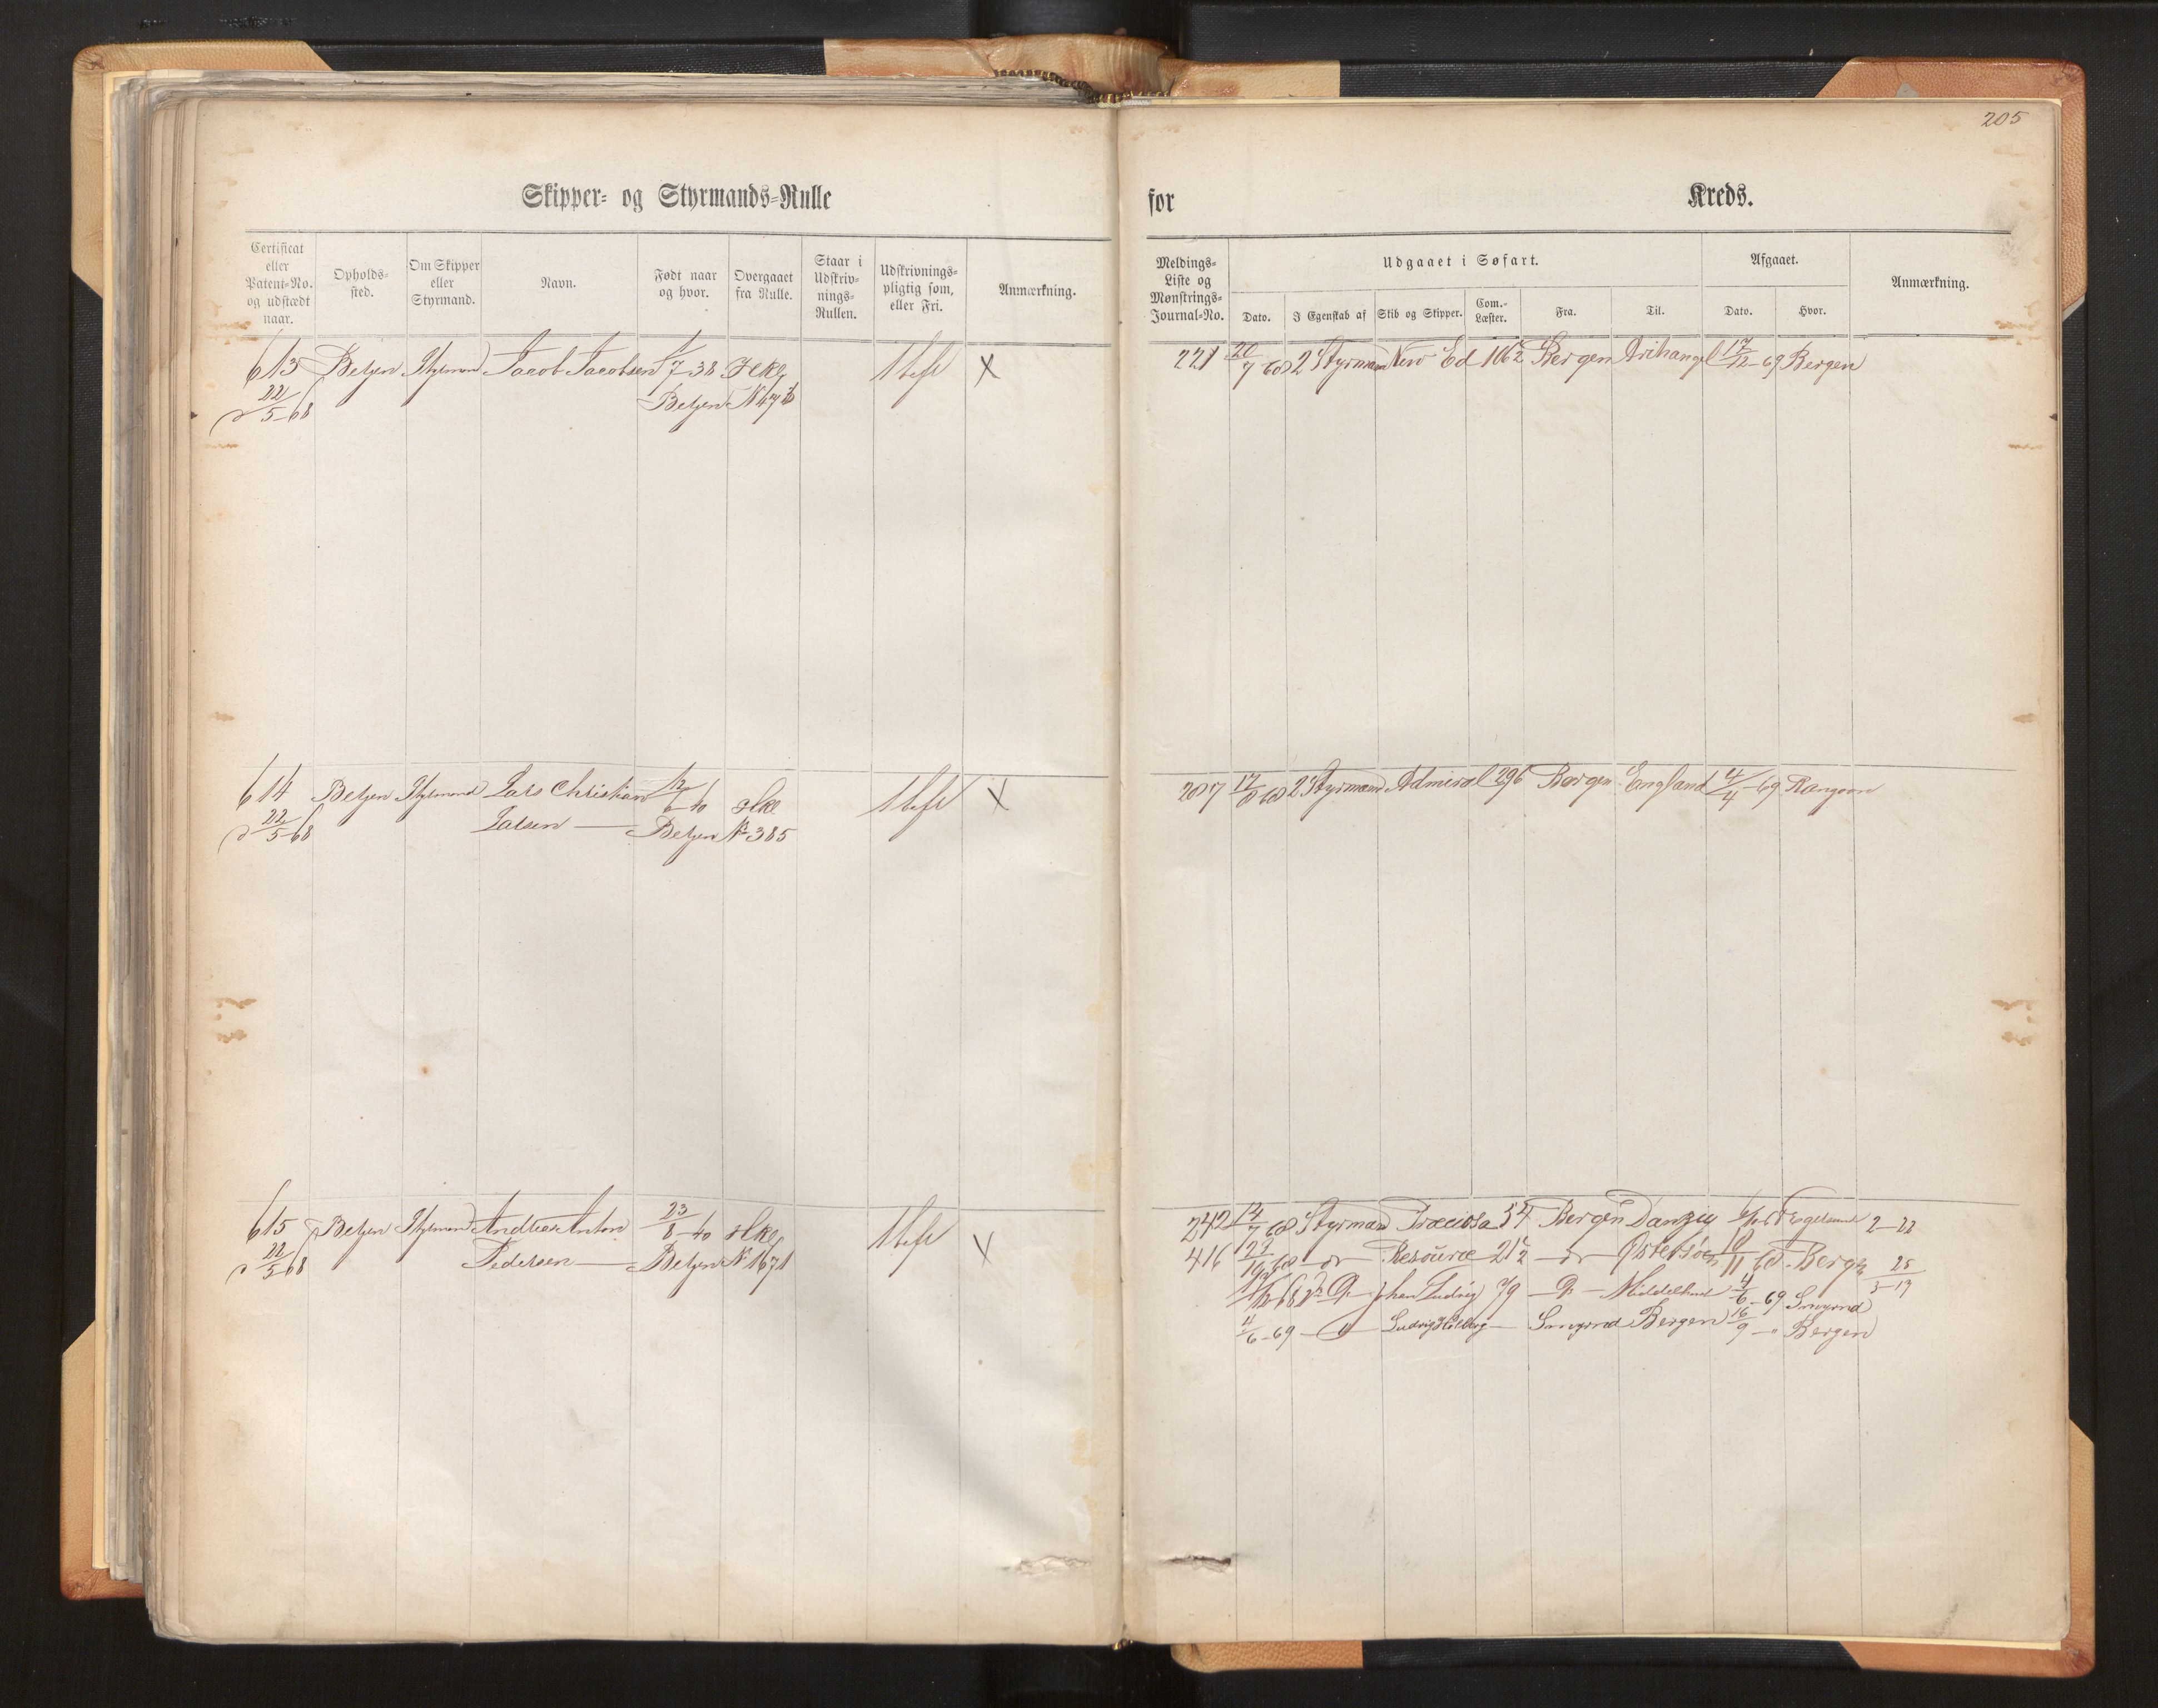 205
Skipper- og Styrmands-Rulle for Kreds.
Certificat eller Patent-No. og udstædt naar.
Opholds-sted.
Om Skipper eller Styrmand.
Navn.
Født naar og hvor.
Overgaaet fra Rulle.
Staar i Udskriv-nings-Rullen.
Udskrivnings-pligtig som, eller Fri.
Anmærkning.
Meldings-Liste og Mønstrings-Journal-No.
Udgaaet i Søfart.
Dato.
I Egenskab af
Skib og Skipper.
Com.-Læster.
Fra.
Til.
Afgaaet.
Dato.
Hvor.
Anmærkning.
613 Bergen Styrmand Jacob Jacobsen 1/7-38
22/5-68 Bergen
221 20/7 68 2 Styrmand Bergen Archangel 17/12-69 Bergen
614 Bergen Styrmand Lars Christian
22/5-68 Larsen Bergen No 385
207 17/8 68 2 Styrmand Admiral 296 Bergen England 4/4-69 Rangoon
615 Bergen Styrmand Andreas Anton 23/8-40
22/5-68 Pedersen Bergen No 1671
242 14/7 68 Styrmand Præciosa 54 Bergen Danzig 2-22
416 do Resource 21½ do Østersøen Bergen 25
Johan Ludvig 79 4/6-69 Smyrna 3-13
4/6-69 Ludvig Holberg Smyrna Bergen 16/9 - " Bergen